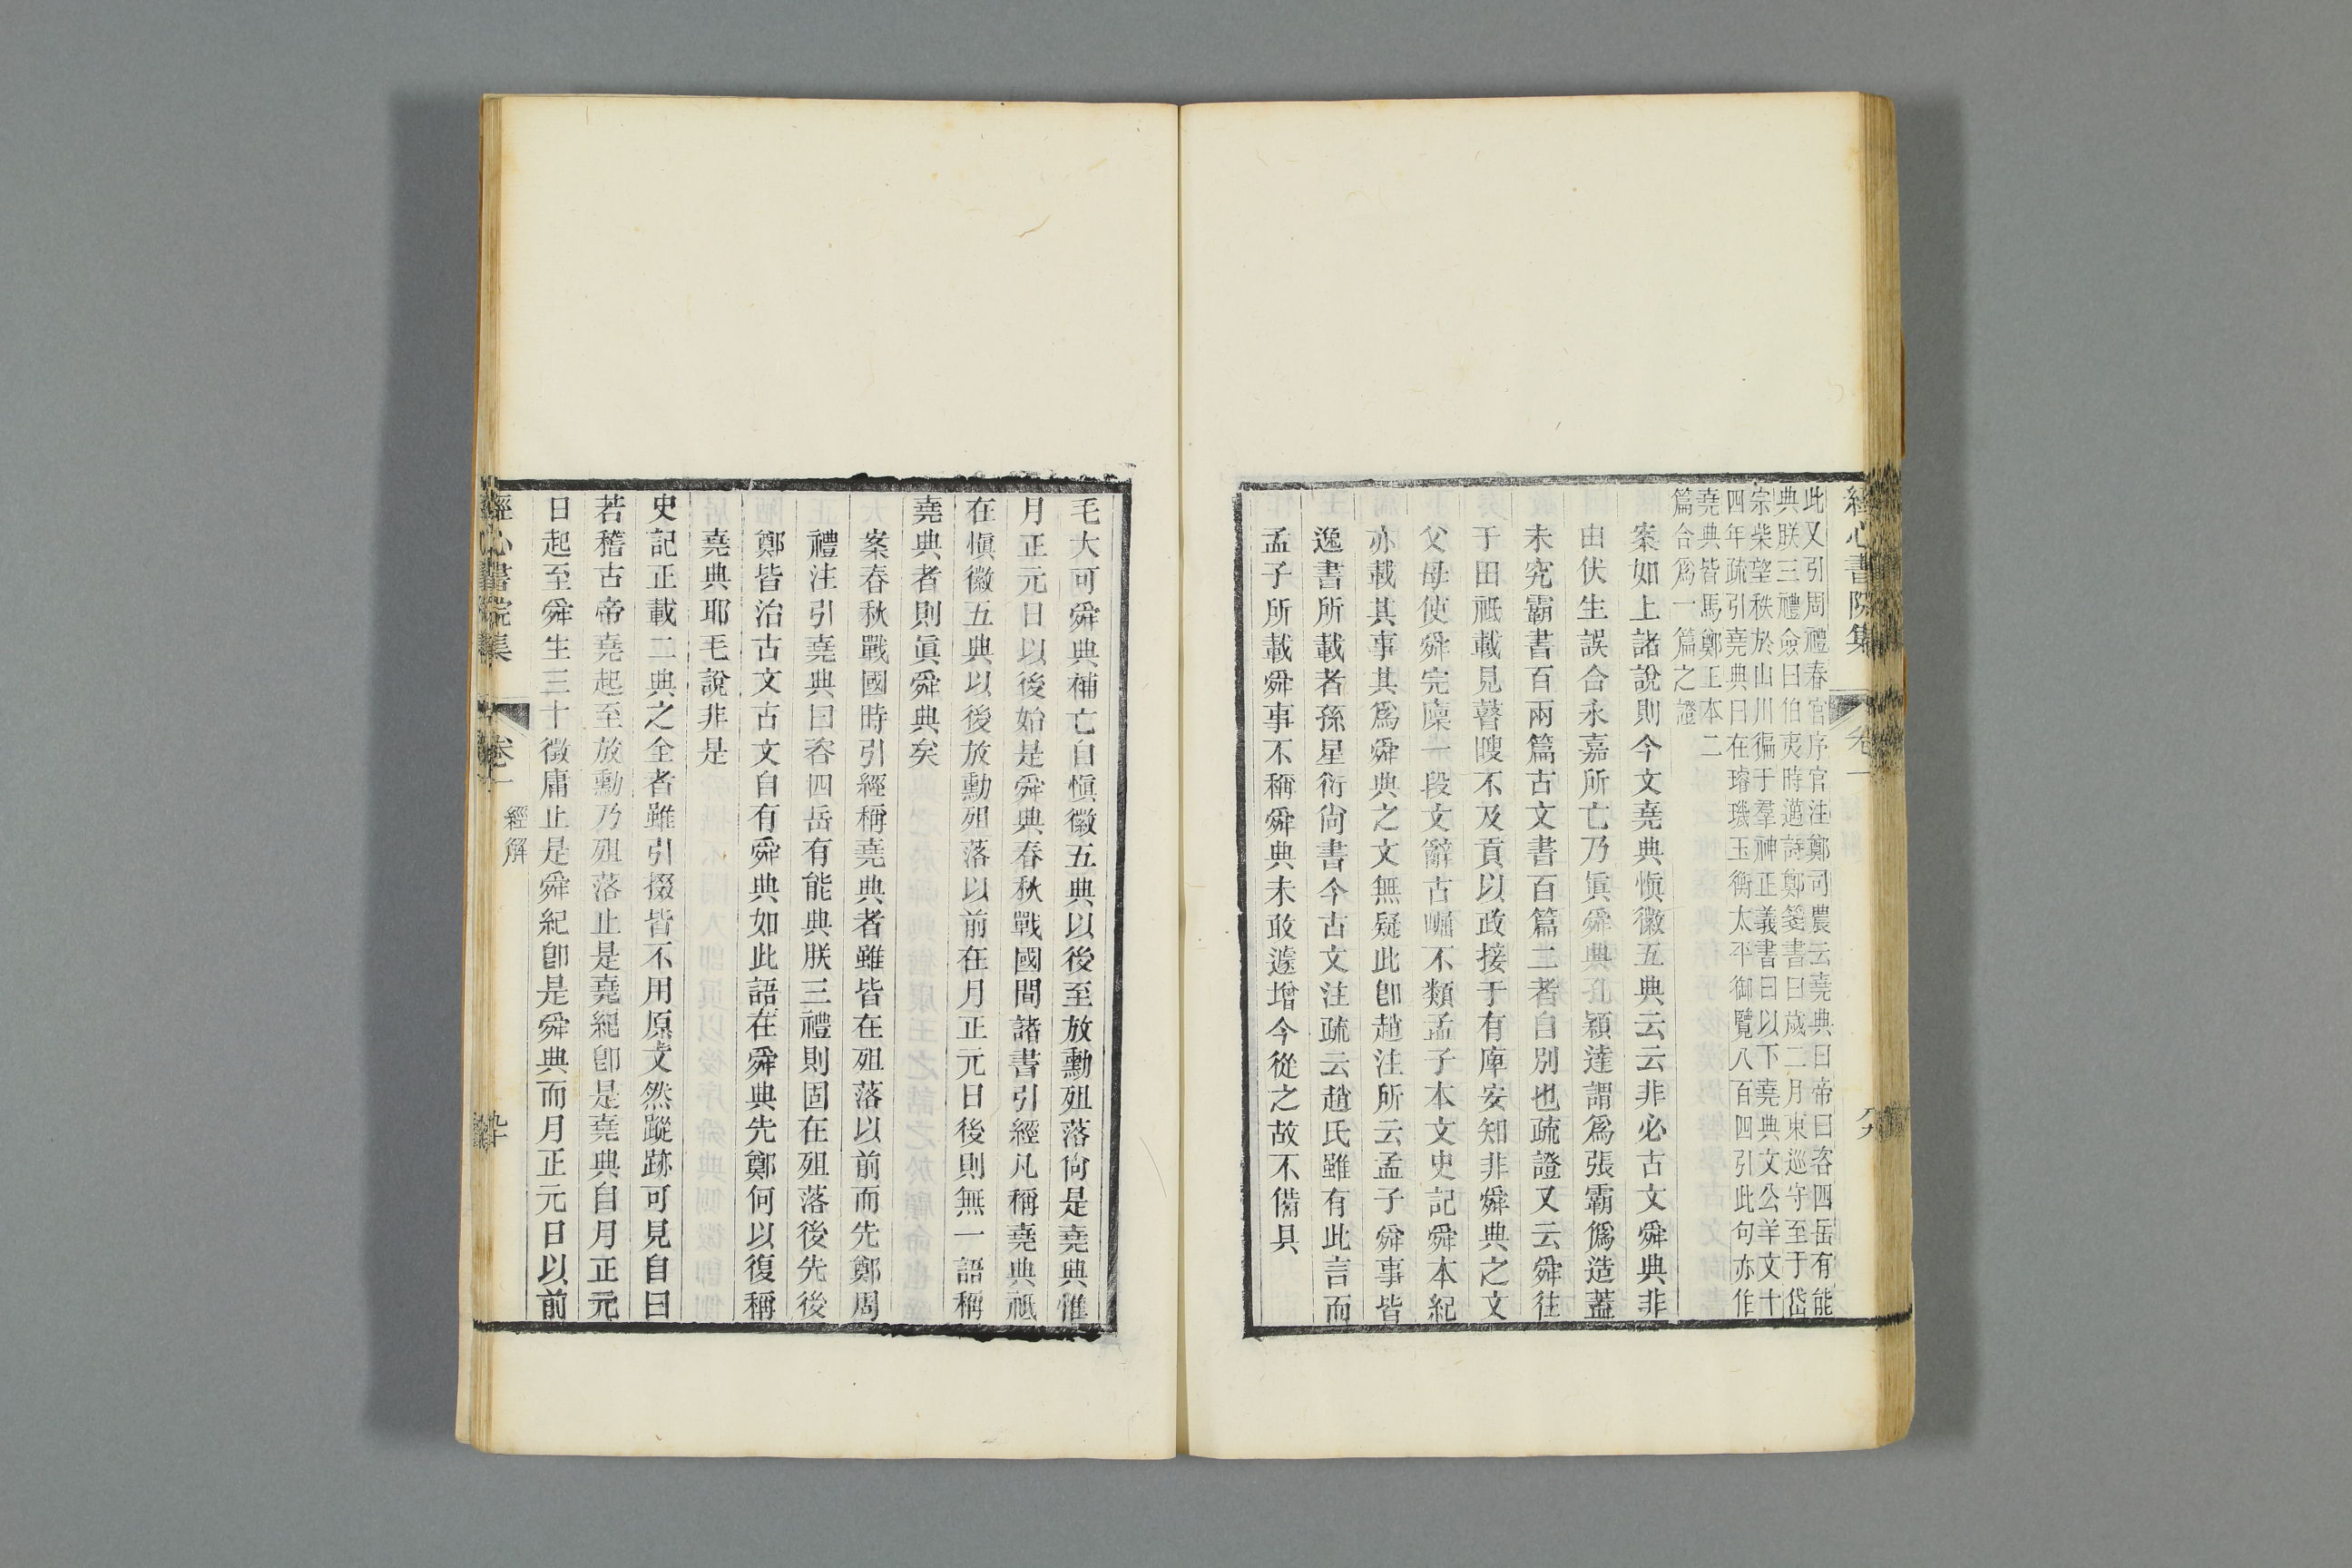 經心書院集
卷一
此又引周禮春官序官注鄭司農云堯典曰帝曰咨四岳有能
典朕三禮僉曰伯夷時邁詩鄭箋書曰歲二月東巡守至于岱
宗柴望秩於山川徧于羣神正義書曰以下堯典文公羊文十
四年疏引堯典曰在璿璣玉衡太平御覽八百四引此句亦作
堯典皆馬鄭王本二
篇合爲一篇之證
案如上諸說則今文堯典愼徽五典云云非必古文舜典非
由伏生誤合永嘉所亡乃眞舜典孔穎達謂爲張霸僞造蓋
未究霸書百兩篇古文書百篇二者自別也疏證又云舜往
于田祗載見瞽瞍不及貢以政接于有庳安知非舜典之文
父母使舜完廩一段文辭古崛不類孟子本文史記舜本紀
亦載其事其爲舜典之文無疑此卽趙注所云孟子舜事皆
逸書所載者孫星衍尙書今古文注疏云趙氏雖有此言而
孟子所載舜事不稱舜典未敢遽增今從之故不備具
毛大可舜典補亡自愼徽五典以後至放勳殂落尙是堯典惟
月正元日以後始是舜典春秋戰國間諸書引經凡稱堯典祗
在愼徽五典以後放勳殂落以前在月正元日後則無一語稱
堯典者則眞舜典矣
案春秋戰國時引經稱堯典者雖皆在殂落以前而先鄭周
禮注引堯典曰咨四岳有能典朕三禮則固在殂落後先後
鄭皆治古文古文自有舜典如此語在舜典先鄭何以復稱
堯典耶毛說非是
史記正載二典之全者雖引掇皆不用原文然蹤跡可見自曰
若稽古帝堯起至放勳乃殂落止是堯紀卽是堯典自月正元
日起至舜生三十徵庸止是舜紀卽是舜典而月正元日以前
經心書院集
卷一
經解